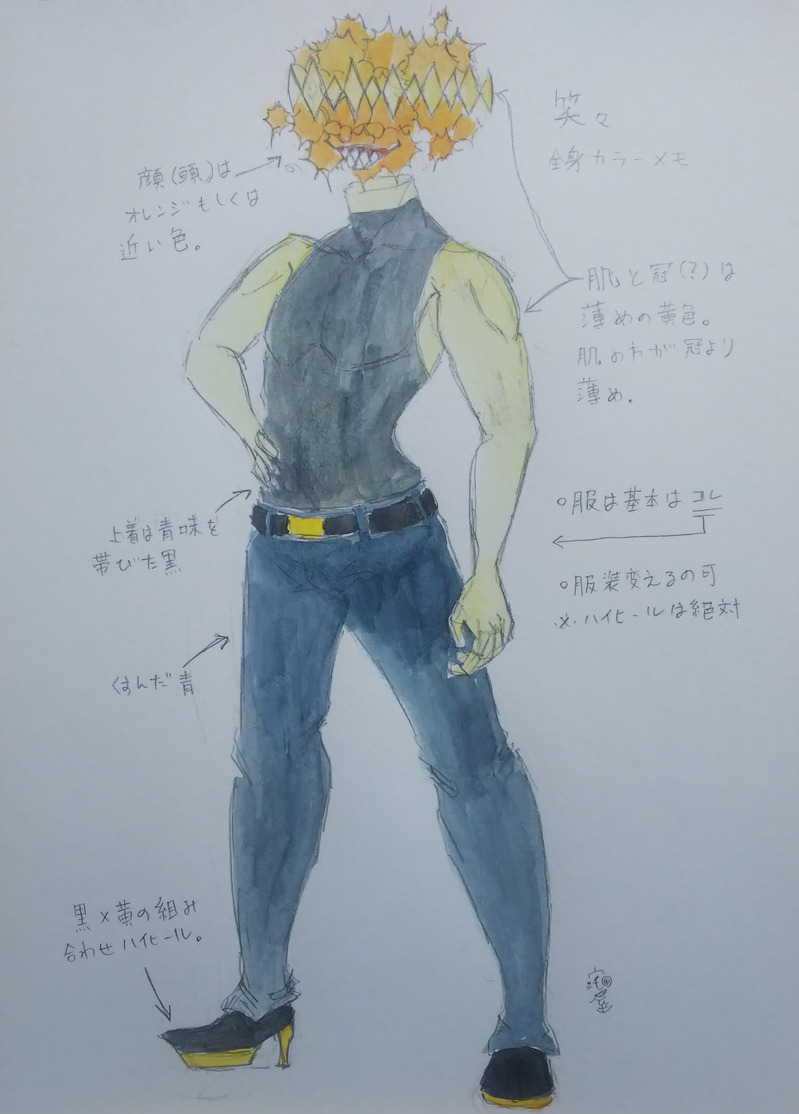 笑々
全身カラーメモ
顔(頭)は
オレンジもしくは
近い色。
肌と冠(?)は
薄めの黄色。
肌のわが冠より
薄め.
上着は青味を
帯びた黒
○服は基本はコレ
○服装変えるの可
※ハイヒールは絶対
くすんだ青
黒×黄の組み
合わせハイヒール。